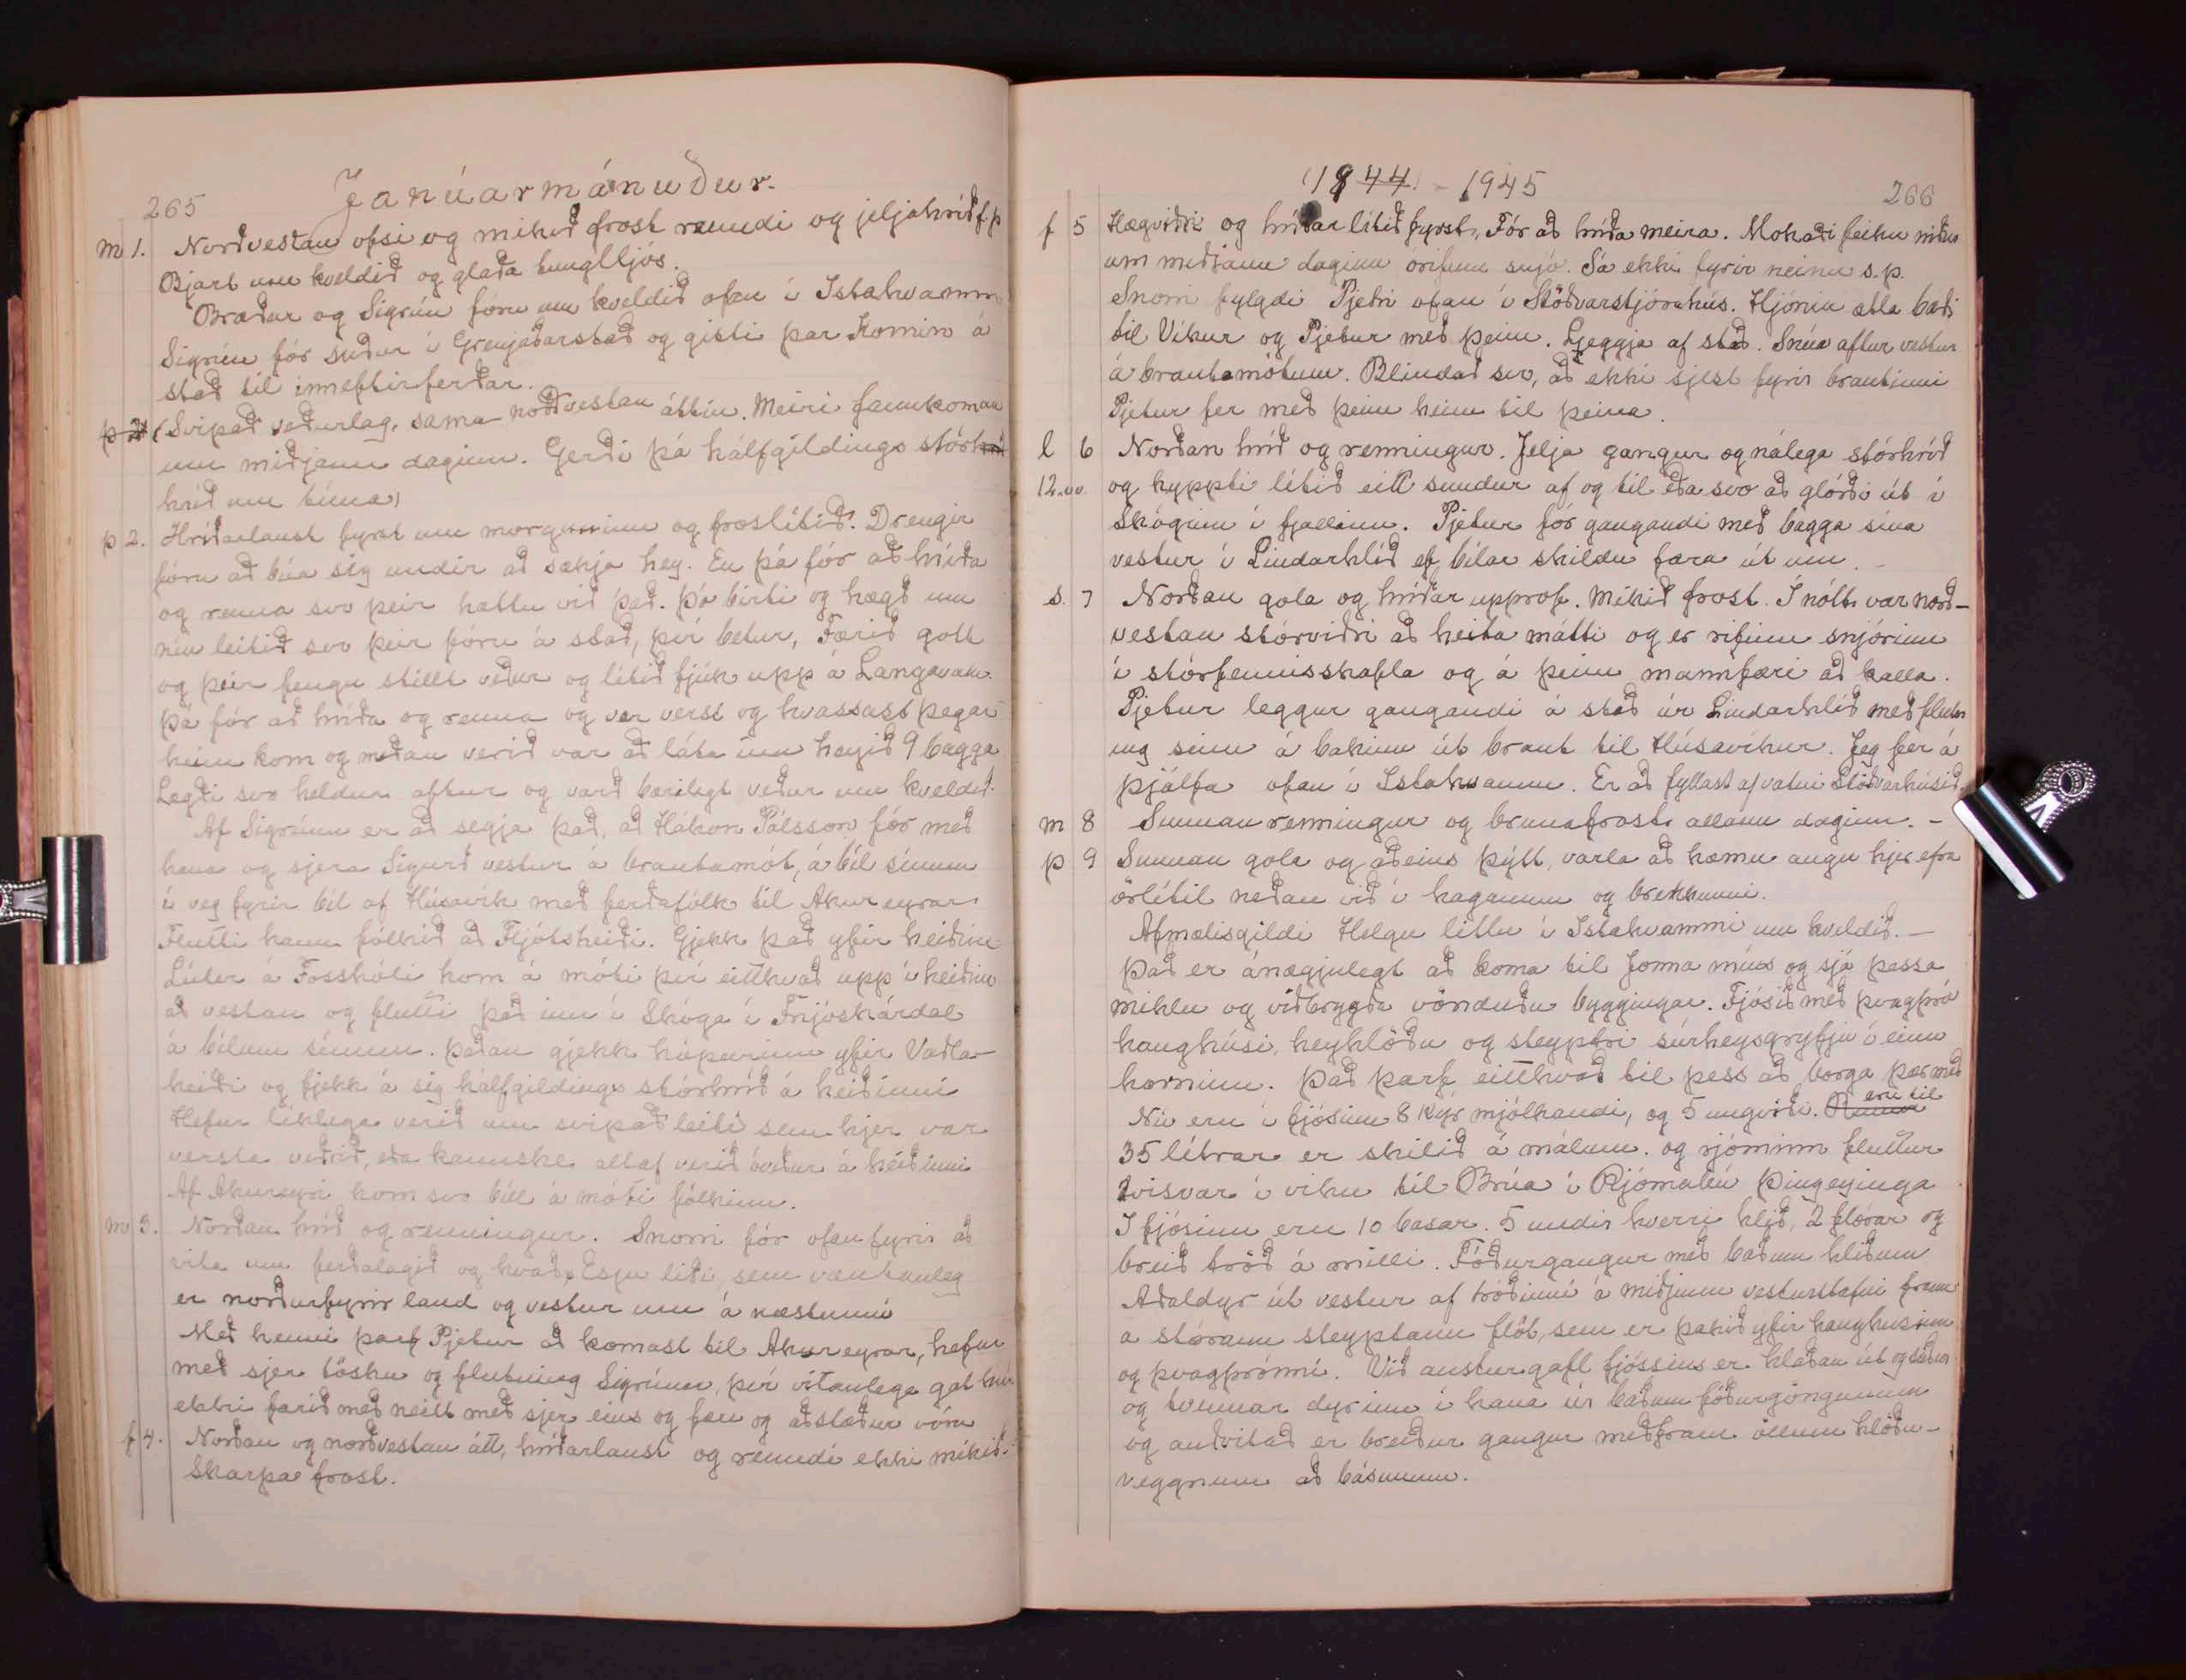 265
Janúarmánuður.
m 1. Norðvestan ofsi og mikið frost renndi og jeljahríð f.p
Bjart um kveldið og glaða tunglljós.
Bræður og Sigrún fóru um kveldið ofan í Ystahvamm
Sigrún fór suður í Grenjaðarstað og gisti þar Komin á
stað til inneftirferðar.
þ 2 (Svipað veðurlag, sama norðvestan áttin. Meiri fannkoman
um miðjann daginn. Gerði þá hálfgildings stórhrí
hríð um tíma)
þ 2. Hríðarlaust fyrst um morguninn og frostlítið. Drengir
fóru að búa sig undir að sækja hey. En þá fór að hríða
og renna svo þeir hættu við það. Þó birti og hægð um
níu leitið svo þeir fóru á stað, því betur, Færið gott
og þeir fengu stillt veður og lítið fjúk upp á Langavatn.
Þá fór að hríða og renna og var verst og hvassast þegar
heim kom og meðan verið var að láta inn heyið 9 bagga
Lægði svo heldur aftur og varð bærilegt veður um kveldið.
Af Sigrúnu er að segja það, að Hákon Pálsson fór með
hana og sjera Sigurð vestur á brautamót, á bíl sínum
í veg fyrir bíl af Húsavík með ferðafólk til Akureyrar.
Flutti hann fólkið að Fljótsheiði. Gjekk það yfir heiðina
Lúter á Fosshóli kom á móti því eitthvað upp í heiðina
að vestan og flutti það inn í Skóga í Fnjóskárdal
á bílum sínum. Þaðan gjekk hópurinn yfir Vaðla-
heiði og fjekk á sig hálfgildings stórhríð á heiðinni
Hefur líklega verið um svipað leiti sem hjer var
versta veðrið, eða kannske altaf verið óveður á heiðinni
Af Akureyri kom svo bíll á móti fólkinu.
m 3. Norðan hríð og renningur. Snorri fór ofan fyrir að
vita um ferðalagið og hvað Esju liði, sem væntanleg
er norðurfyrir land og vestur um á næstunni
Með henni þarf Pjetur að komast til Akureyrar, hefur
með sjer tösku og flutning Sigrúnar, því vitanlega gat hún
ekki farið með neitt með sjer eins og færi og aðstæður vóru
f 4. Norðan og norðvestan átt, hríðarlaust og renndi ekki mikið.
Skarpa frost.
1944 - 1945
266
f 5 Hægviðri og hríðar lítið fyrst, Fór að hríða meira. Mokaði feikn niður
um miðjann daginn órifnum snjó. Sá ekki fyrir neinu s.p.
Snorri fylgdi Pjetri ofan í Stöðvarstjórahús. Hjónin ætla bæði
til Víkur og Pjetur með þeim. Leggja af stað. Snúa aftur vestur
á brautamótum. Blindað svo, að ekki sjest fyrir brautinni
Pjetur fer með þeim heim til þeirra.
l 6 Norðan hríð og renningur. Jelja gangur og nálega stórhríð
12.00. og kyppti lítið eitt sundur af og til eða svo að glórði út í
skóginn í fjallinu. Pjetur fór gangandi með bagga sína
vestur í Lindarhlíð ef bílar skildu færa út um.
s. 7 Norðan gola og hríðar upprof. Mikið frost. Í nótt var norð-
vestan stórviðri að heita mátti og er rifinn snjórinn
í stórfennisskafla og á þeim mannfæri að kalla.
Pjetur leggur gangandi á stað úr Lindarhlíð með flutn
ing sinn á bakinu út braut til Húsavíkur. Jeg fer á
Þjálfa ofan í Ystahvamm. Er að fyllast af vatni Stöðvarhúsið.
m 8 Sunnan renningur og brunafrost allann daginn. -
þ 9 Sunnan gola og aðeins þýtt, varla að kæmu augu hjer efra
örlítil neðan við í haganum og brekkunni.
Afmælisgildi Helgu litlu í Ystahvammi um kveldið. -
Það er ánægjulegt að koma til Jonna míns og sjá þessa
miklu og viðbrygða vönduðu byggingar. Fjósið með þvagþró
haughúsi, heyhlöðu og steyptri súrheysgryfju í einu
horninu. Það þarf eitthvað til þess að borga þar með
Nú eru í fjósinu 8 kýr mjólkandi, og 5 ungviði. eru til
35 lítrar er skilið á málum. og rjóminn fluttur
tvisvar í viku til Brúa í Rjómabú Þingeyinga
Í fjósinu eru 10 básar. 5 undir hverri hlið, 2 flórar og
breið tröð á milli. Fóðurgangur með báðum hliðum
Aðaldyr út vestur af tröðinni á miðjum vesturstafni fram
á stórann steyptann flöt, sem er þakið yfir haughúsinu
og þvagþrónni. Við austurgafl fjóssins er hlaðan út og suður
og tvennar dyr inn í hana úr báðum fóðurgöngunum
og auðvitað er breiður gangur meðfram öllum hlöðu-
veggnum að básunum.